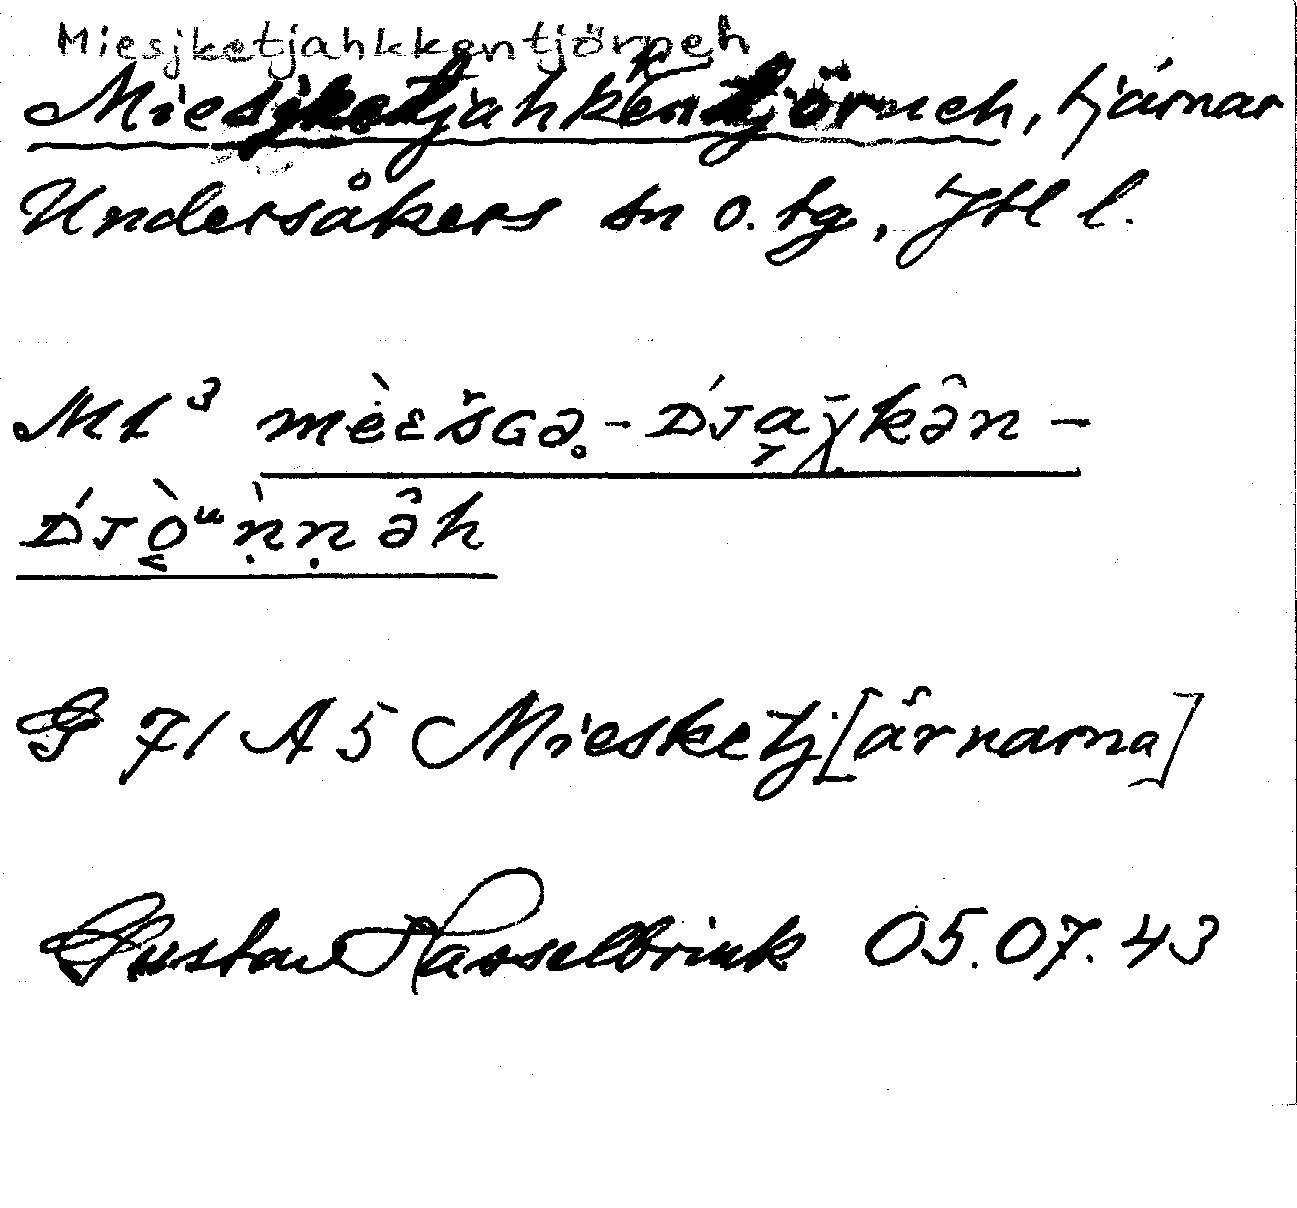 Miesjketjahkkentjörneh
Miesjketjahkkentjörneh, tjärnar
Undersåkers sn o. tg, Jtl l.
Ml³ mèɛšGə̥-D́ᴊa͔ɣ̄kə̂n-
D́ᴊò̤ᵘṇ̀ṇə̂h
G 71 A 5 Miesketj[ärnarna]
Gustav Hasselbrink 05.07.43